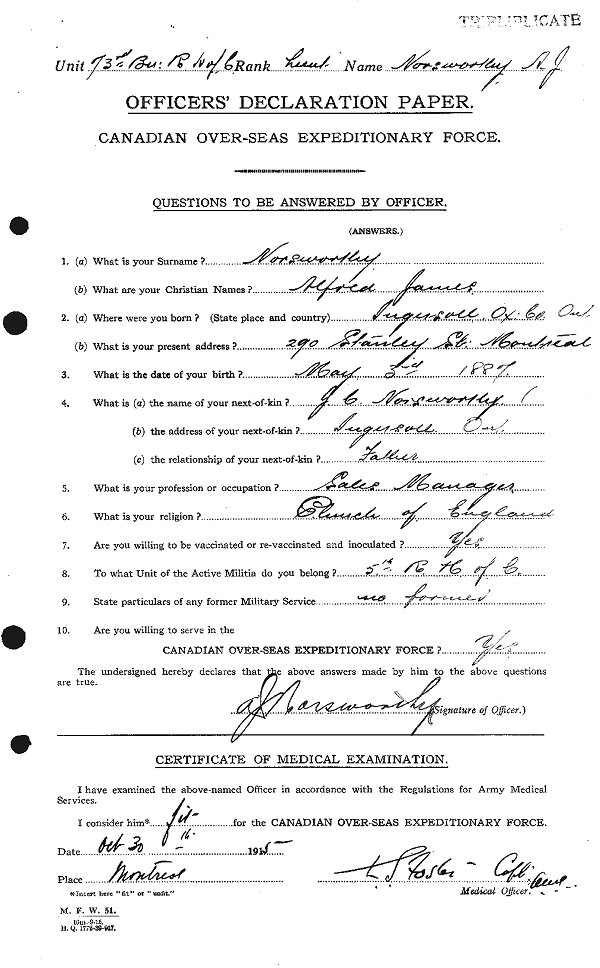 TRIPLIPLICATE
Unit 73rd Bn: R H of C Rank Lieut. Name Norsworthy A J
OFFICERS' DECLARATION PAPER.
CANADIAN OVER-SEAS EXPEDITIONARY FORCE.
QUESTIONS TO BE ANSWERED BY OFFICER.
(ANSWERS.)
1. (a) What is your Surname? Norsworthy
(b) What are your Christian Names? Alfred James
2. (a) Where were you born? (State place and country) Ingersoll Ox. Co. Ont.
(b) What is your present address? 290 Stanley St. Montreal
3. What is the date of your birth? May 3rd 1887.
4. What is (a) the name of your next-of-kin? J C Norsworthy
(b) the address of your next-of-kin? Ingersoll Ont.
(c) the relationship of your next-of-kin? Father
5. What is your profession or occupation? Sales Manager
6. What is your religion? Church of England
7. Are you willing to be vaccinated or re-vaccinated and inoculated? Yes
8. To what Unit of the Active Militia do you belong? 5th R H of C.
9. State particulars of any former Military Service no former
10. Are you willing to serve in the
CANADIAN OVER-SEAS EXPEDITIONARY FORCE? Yes
The undersigned hereby declares that the above answers made by him to the above questions
are true.
A J Norsworthy (Signature of Officer.)
CERTIFICATE OF MEDICAL EXAMINATION.
I have examined the above-named Officer in accordance with the Regulations for Army Medical
Services.
I consider him* fit for the CANADIAN OVER-SEAS EXPEDITIONARY FORCE.
Date Oct 30th 1915
Place Montreal
Foster Capt
*Insert here "fit" or "unfit."
Medical Officer.
M. F. W. 51.
H. Q. 1772-39-917.